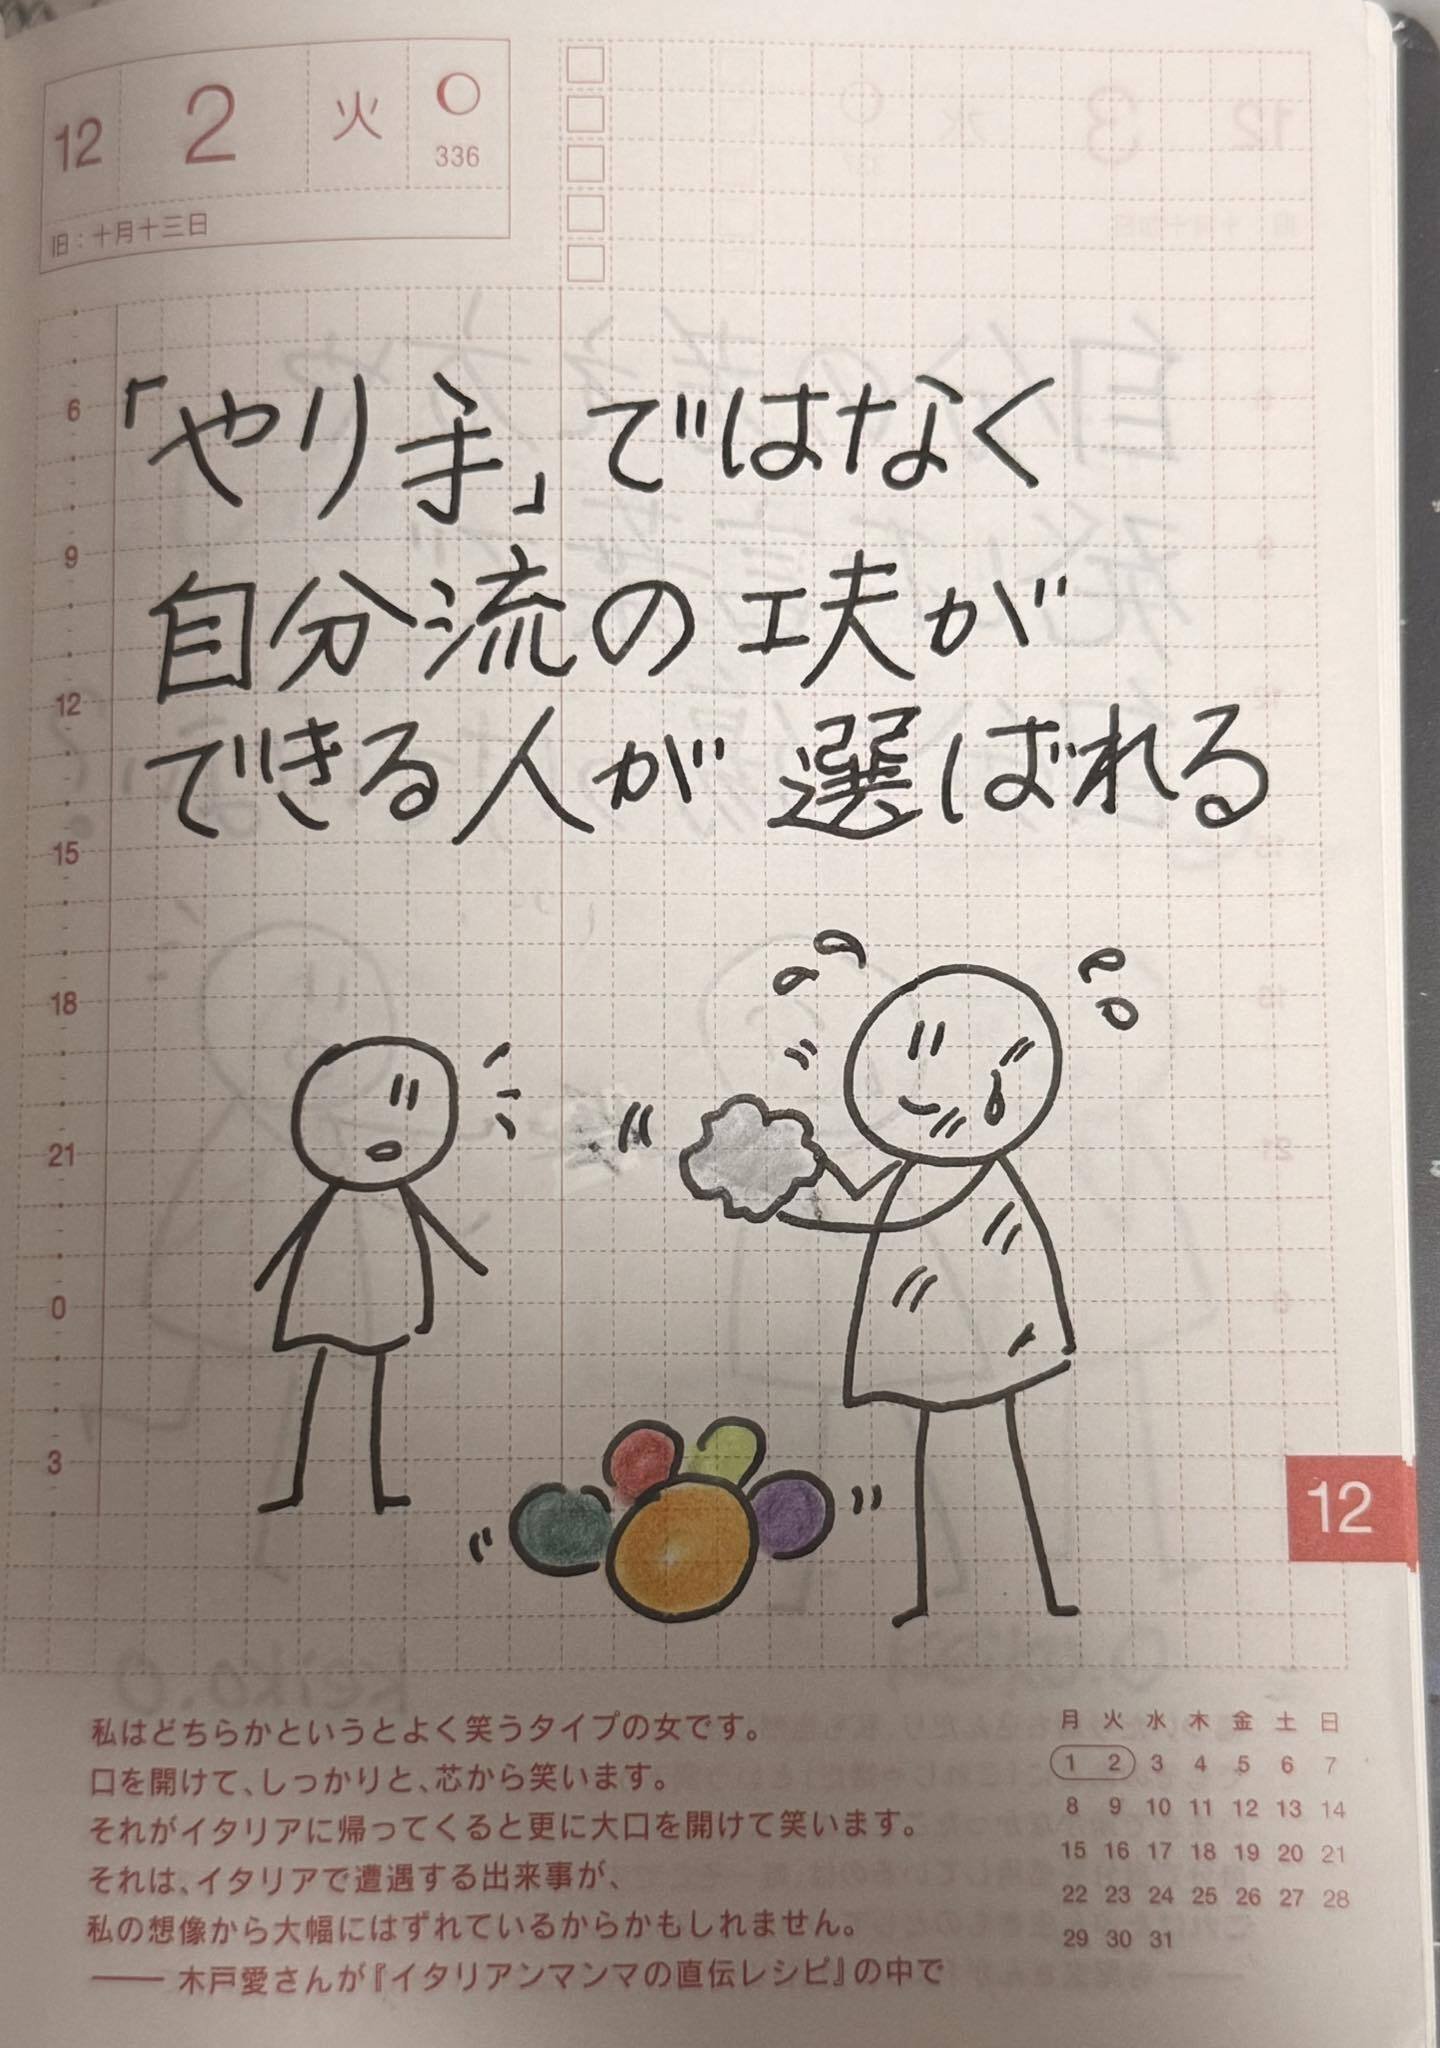 12 2 火
336
旧：十月十三日
「やり手」ではなく
自分流の工夫が
できる人が選ばれる
6
9
12
15
18
21
0
3
12
私はどちらかというとよく笑うタイプの女です。
口を開けて、しっかりと、芯から笑います。
それがイタリアに帰ってくると更に大口を開けて笑います。
それは、イタリアで遭遇する出来事が、
私の想像から大幅にはずれているからかもしれません。
―― 木戸愛さんが『イタリアンマンマの直伝レシピ』の中で
月 火 水 木 金 土 日
1 2 3 4 5 6 7
8 9 10 11 12 13 14
15 16 17 18 19 20 21
22 23 24 25 26 27 28
29 30 31